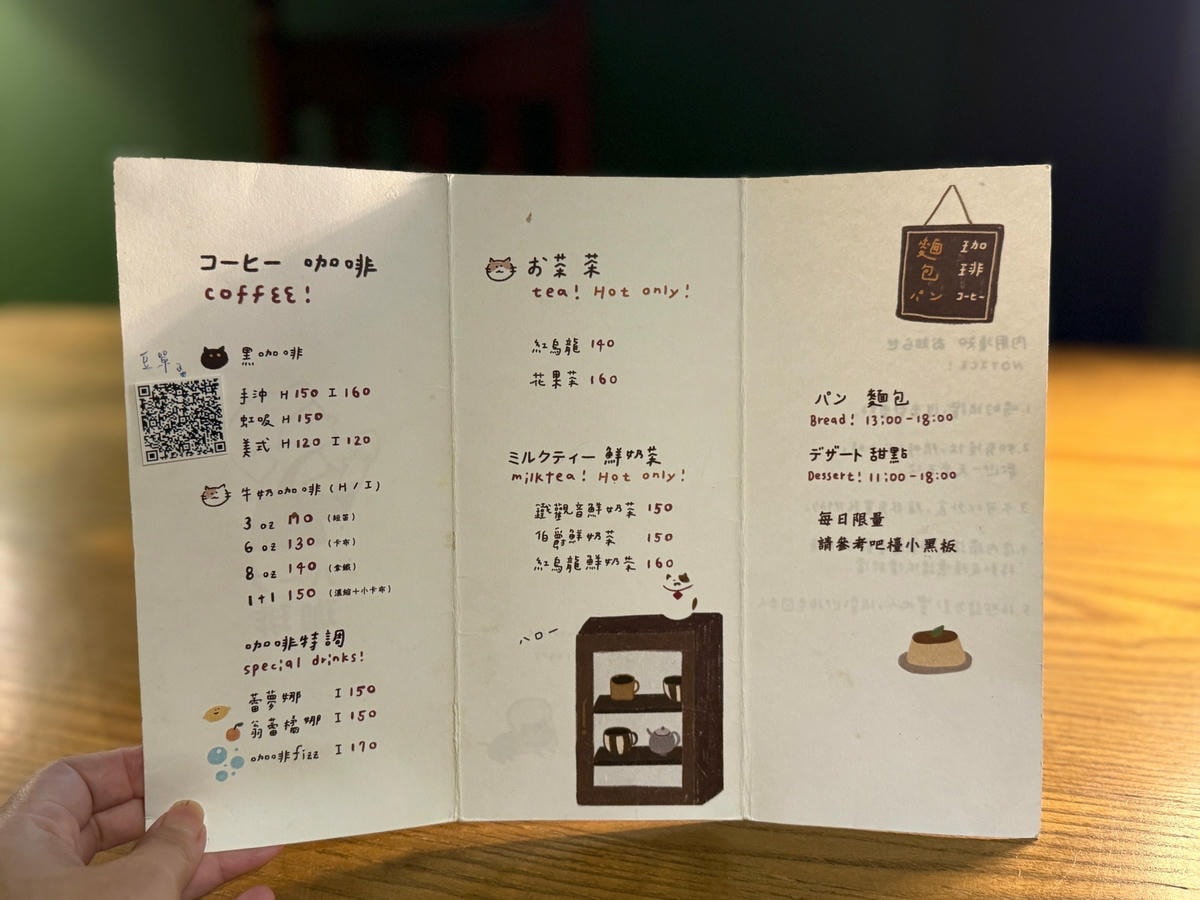 コーヒー 咖啡
coffee!
豆單
黑咖啡
手沖 H 150 I 160
虹吸 H 150
美式 H 120 I 120
牛奶咖啡 (H / I)
3 oz 110 (短笛)
6 oz 130 (卡布)
8 oz 140 (拿鐵)
1+1 150 (濃縮+小卡布)
咖啡特調
special drinks!
蕾夢娜 I 150
翁蕾橘娜 I 150
咖啡fizz I 170
お茶 茶
tea! Hot only!
紅烏龍 140
花果茶 160
ミルクティー 鮮奶茶
milktea! Hot only!
鐵觀音鮮奶茶 150
伯爵鮮奶茶 150
紅烏龍鮮奶茶 160
ハロー
麵包 珈琲
パン コーヒー
パン 麵包
Bread! 13:00-18:00
デザート 甜點
Dessert! 11:00-18:00
每日限量
請參考吧檯小黑板